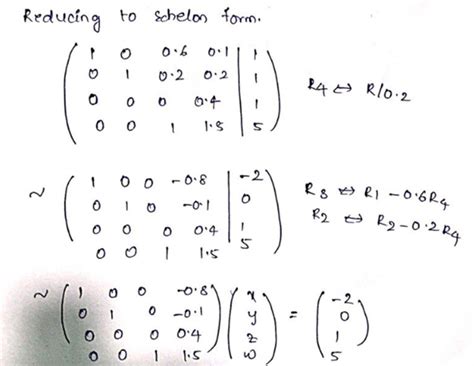 Reducing to echelon form.
1 0 0.6 0.1 | 1
0 1 0.2 0.2 | 1
0 0 0 0.4 | 1
0 0 1 1.5 | 5
R4 ↔ R/0.2
~ 1 0 0 -0.8 | -2
0 1 0 -0.1 | 0
0 0 0 0.4 | 1
0 0 1 1.5 | 5
R3 ↔ R1 - 0.6R4
R2 ↔ R2 - 0.2R4
~ 1 0 0 -0.8 x = -2
0 1 0 -0.1 y 0
0 0 0 0.4 z 1
0 0 1 1.5 w 5